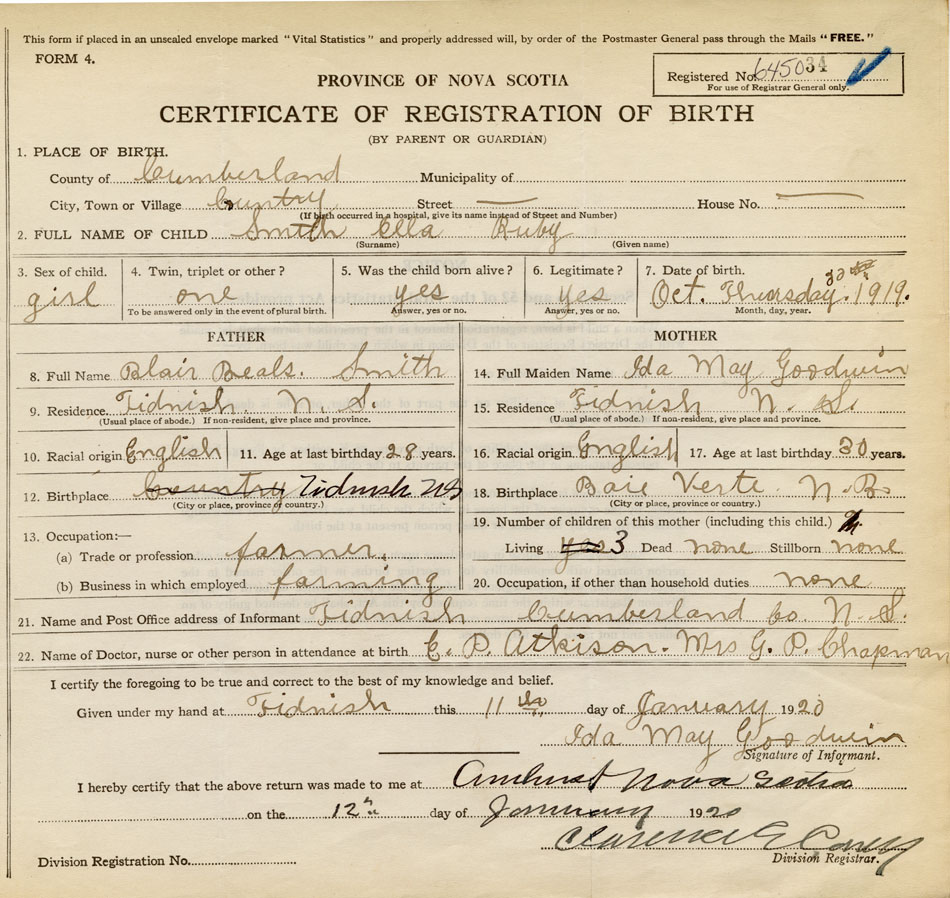 This form if placed in an unsealed envelope marked "Vital Statistics" and properly addressed will, by order of the Postmaster General pass through the Mails "FREE."
FORM 4.
Registered No. 645034
For use of Registrar General only.
PROVINCE OF NOVA SCOTIA
CERTIFICATE OF REGISTRATION OF BIRTH
(BY PARENT OR GUARDIAN)
1. PLACE OF BIRTH.
County of Cumberland Municipality of
City, Town or Village Country Street — House No. —
(If birth occurred in a hospital, give its name instead of Street and Number)
2. FULL NAME OF CHILD Smith Ella Ruby
(Surname) (Given name)
3. Sex of child. 4. Twin, triplet or other? 5. Was the child born alive? 6. Legitimate? 7. Date of birth.
girl one yes yes Oct. Thursday 30th 1919.
To be answered only in the event of plural birth. Answer, yes or no. Answer, yes or no. Month, day, year.
FATHER MOTHER
8. Full Name Blair Beals. Smith 14. Full Maiden Name Ida May Goodwin
9. Residence. Tidnish. N. S. 15. Residence Tidnish N. S.
(Usual place of abode.) If non-resident, give place and province. (Usual place of abode.) If non-resident, give place and province.
10. Racial origin English 11. Age at last birthday 28 years. 16. Racial origin English 17. Age at last birthday 30 years.
12. Birthplace Country Tidnish NS 18. Birthplace Baie Verte N. B.
(City or place, province or country.) (City or place, province or country.)
13. Occupation:— 19. Number of children of this mother (including this child.)
(a) Trade or profession farmer. Living yes 3 Dead none Stillborn none
(b) Business in which employed farming 20. Occupation, if other than household duties none
21. Name and Post Office address of Informant Tidnish Cumberland Co. N. S.
22. Name of Doctor, nurse or other person in attendance at birth C. P. Atkison. Mrs G. P. Chapman
I certify the foregoing to be true and correct to the best of my knowledge and belief.
Given under my hand at Tidnish this 11th day of January 1920
Ida May Goodwin
Signature of Informant.
I hereby certify that the above return was made to me at Amherst Nova Scotia
on the 12th day of January 1920
Clarence E
Division Registration No. Division Registrar.